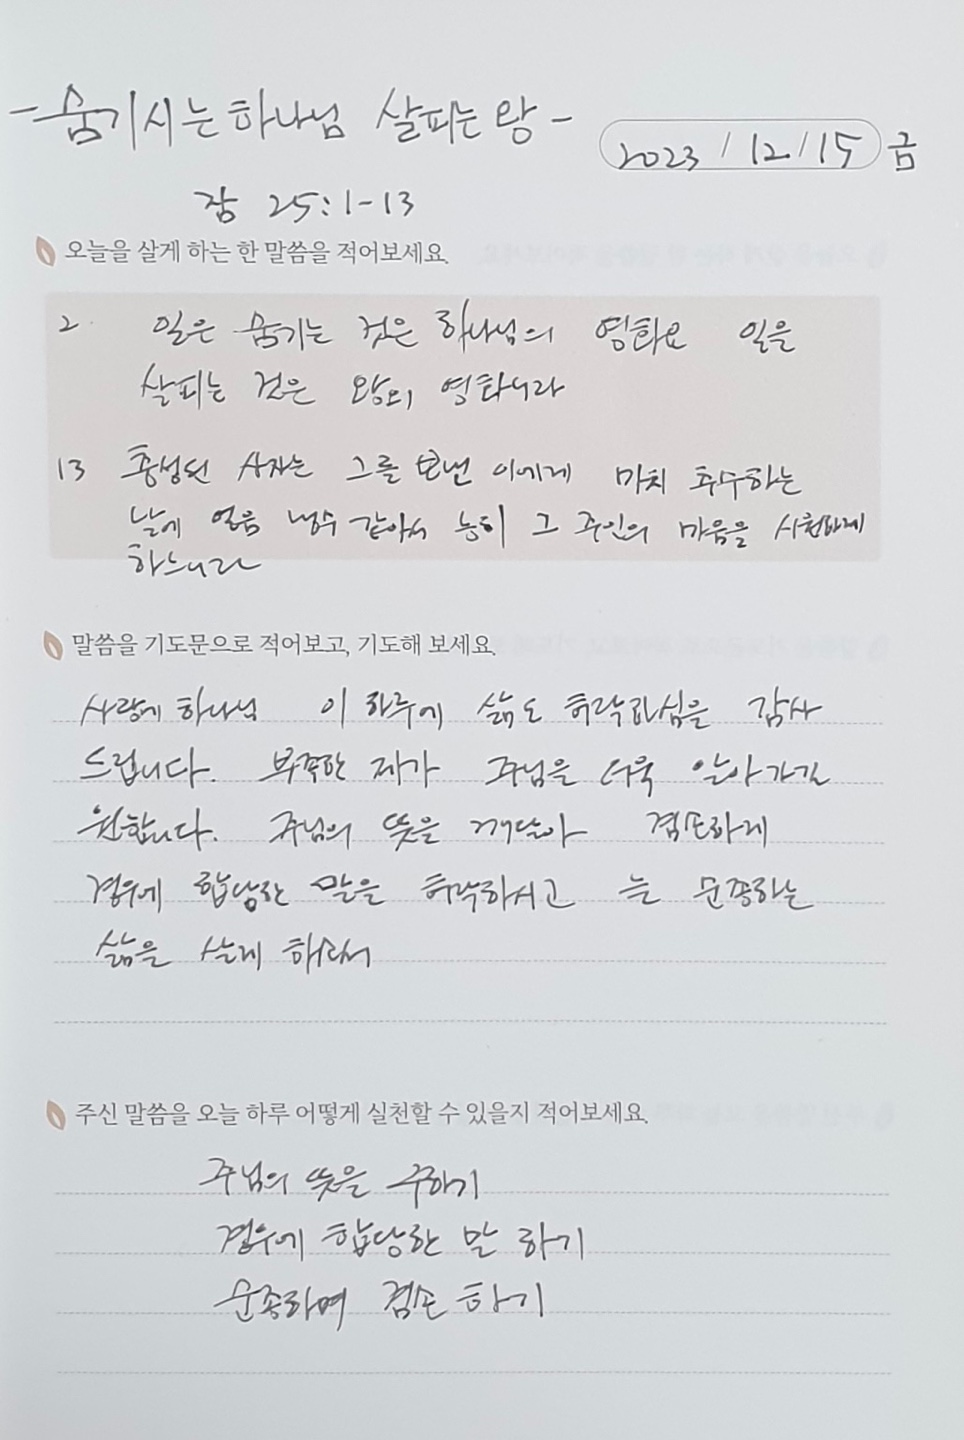 -숨기시는 하나님 살피는 왕-
2023/12/15 금
잠 25:1-13
오늘을 살게 하는 한 말씀을 적어보세요.
2. 일은 숨기는 것은 하나님의 영화요 일을
살피는 것은 왕의 영화니라
13 충성된 사자는 그를 보낸 이에게 마치 추수하는
날에 얼음 냉수 같아서 능히 그 주인의 마음을 시원하게
하느니라
말씀을 기도문으로 적어보고, 기도해 보세요.
사랑에 하나님 이 하루에 삶도 허락하심을 감사
드립니다. 부족한 제가 주님을 더욱 알아가길
원합니다. 주님의 뜻을 깨달아 겸손하게
경우에 합당한 말을 허락하시고 는 순종하는
삶을 살게 하소서
주신 말씀을 오늘 하루 어떻게 실천할 수 있을지 적어보세요.
주님의 뜻을 구하기
경우에 합당한 말 하기
순종하며 겸손 하기